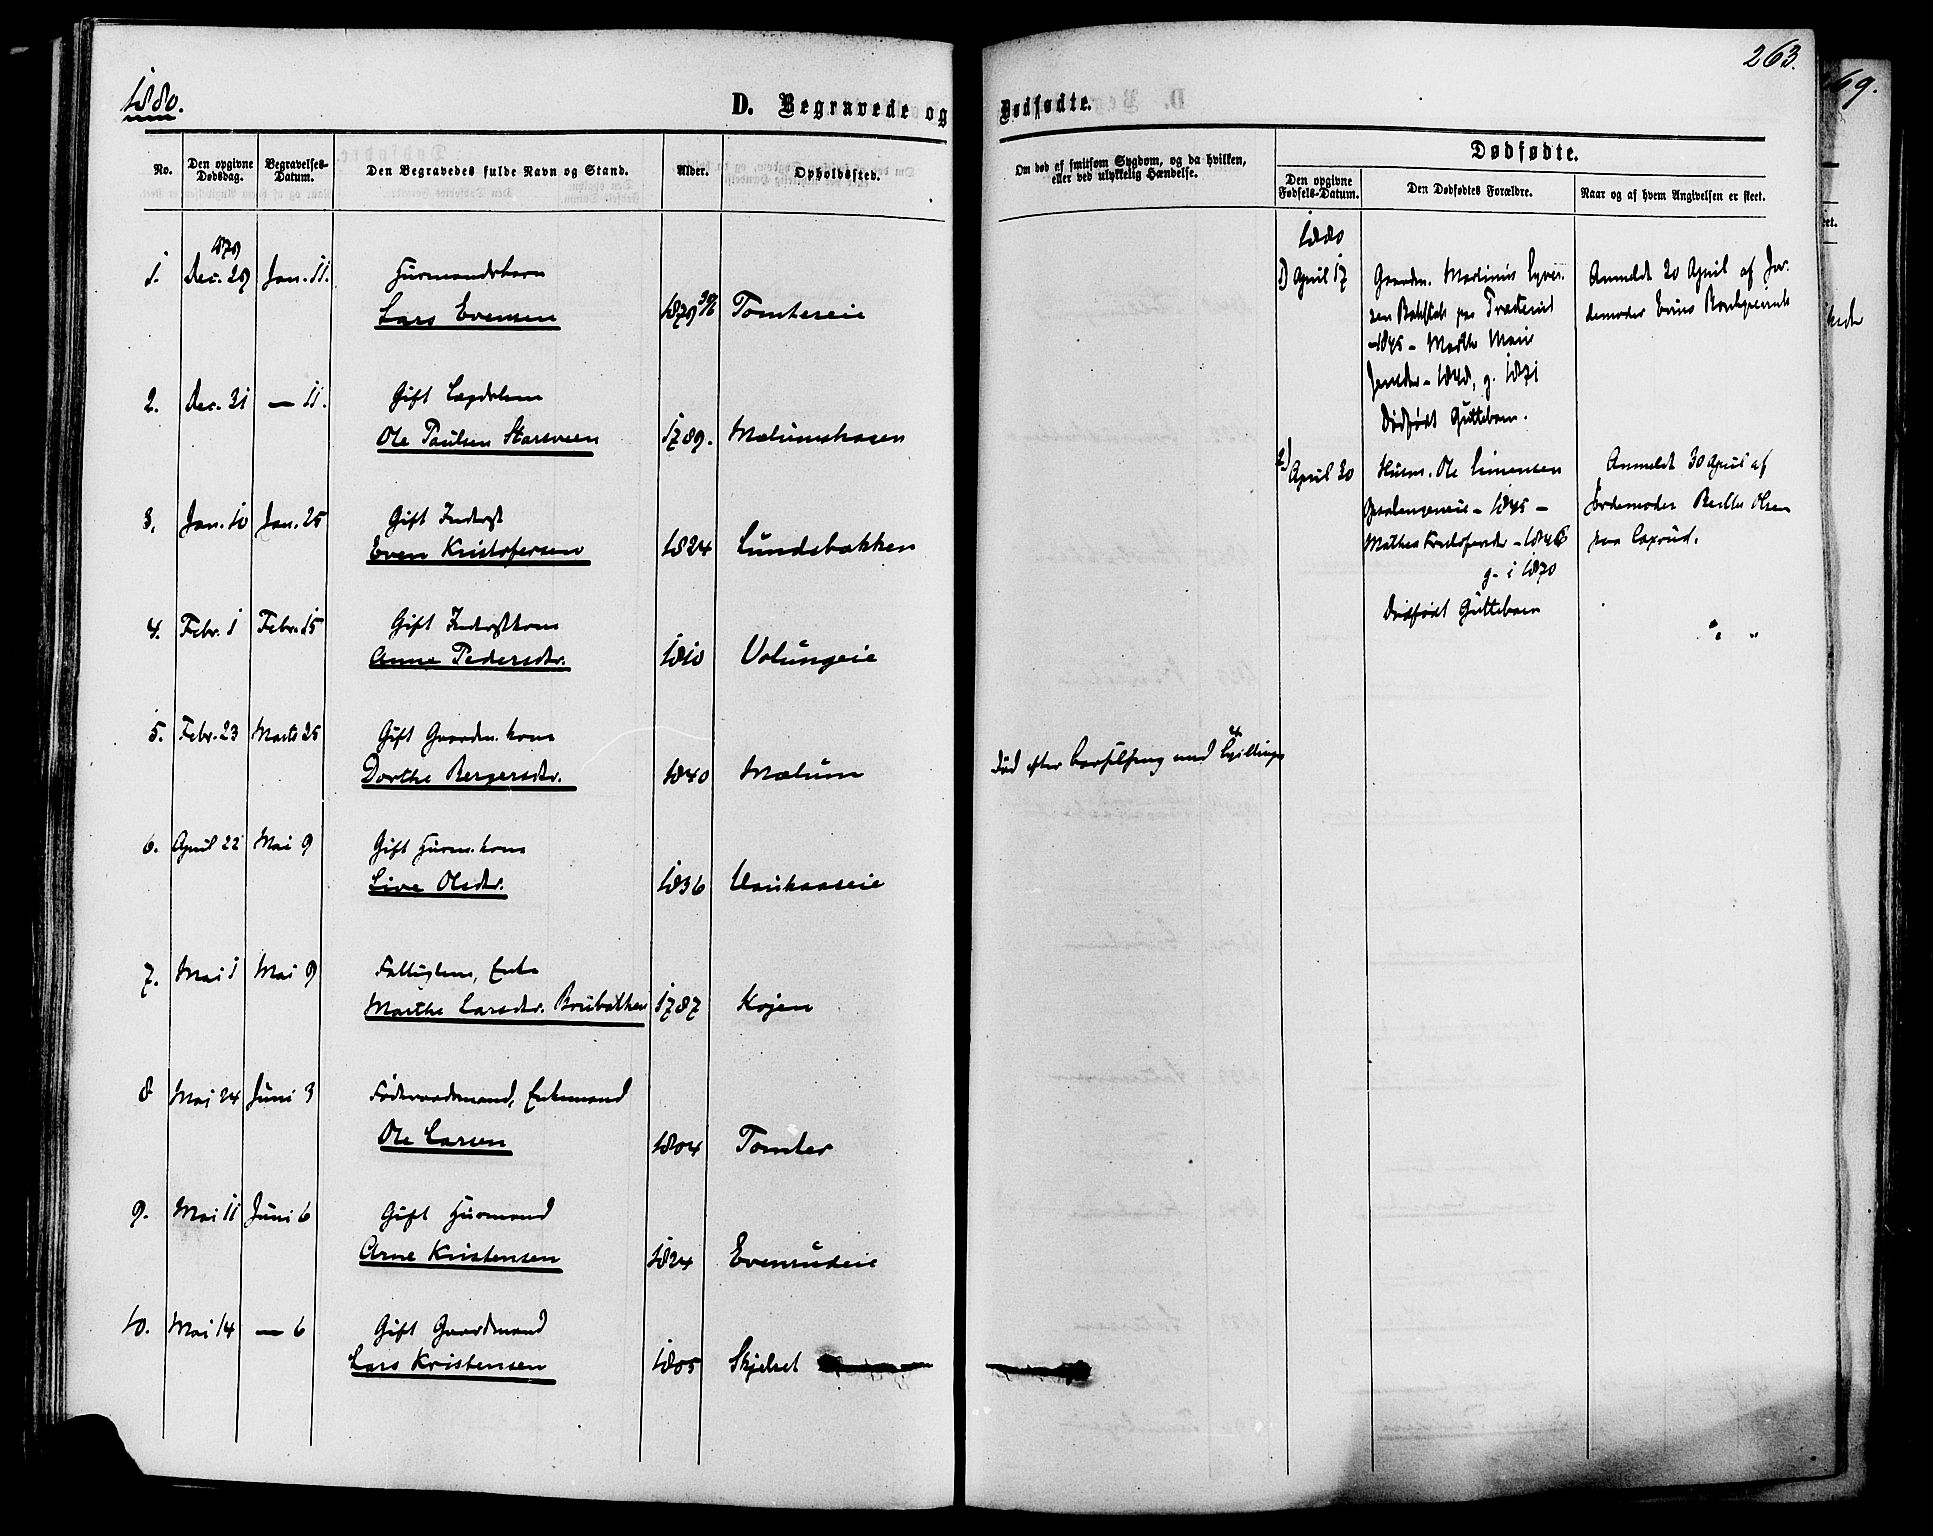 1880.
263.
D. Begravede og Dødfødte.
No.
Den opgivne Dødsdag.
Begravelses-Datum.
Den Begravedes fulde Navn og Stand.
Alder.
Opholdssted.
Om død af smitsom Sygdom, og da hvilken,
eller ved ulykkelig Hændelse.
Dødfødte.
Den opgivne Fødsels-Datum.
Den Dødfødtes Forældre.
Naar og af hvem Angivelsen er skeet.
1879
1. Dec. 29 Jan. 11. Husmandsbarn
Lars Evensen 1879 30/6 Tomtereie
2. Dec. 31 — 11. Gift Lægdslem
Ole Paulsen Starsveen 1789. Mælumshagen
3. Jan. 10 Jan. 25 Gift Inderst
Even Kristofersen 1824 Lundsbakken
4. Febr. 1 Febr. 15 Gift Inderstkone
Anne Pedersdtr. 1810 Volungeie
5. Febr. 23 Marts 25 Gift Gaardm. kone
Dorthe Bergersdtr. 1840 Mælum
Død efter Barselseng med Tvillinger
6. April 22 Mai 9 Gift Husm. kone
Live Olsdtr. 1836
7. Mai 1 Mai 9 Fattiglem, Enke
Marthe Larsdtr. Brubakken 1787 Kojen
8 Mai 24 Juni 3 Føderaadsmand, Enkemand
Ole Larsen 1804 Tomter
9. Mai 11 Juni 6 Gift Husmand
Arne Kristensen 1824 Evensudeie
10. Mai 14 — 6 Gift Gaardmand
Lars Kristensen 1805 Skjelset
1880
1) April 17
Gaardm. Martinus Syver-
sen Bakstad paa
- 1845 - Marthe Marie
Jensdtr - 1848, g. 1871
Dødfødt Guttebarn.
Anmeldt 20 April af Jor-
demoder
2) April 30
Husm. Ole Simensen
- 1845 -
Mathea Kristofersdtr - 1846
g. i 1870
Dødfødt Guttebarn
Anmeldt 30 April af
Jordemoder Berthe Olsen
paa
" "
69.